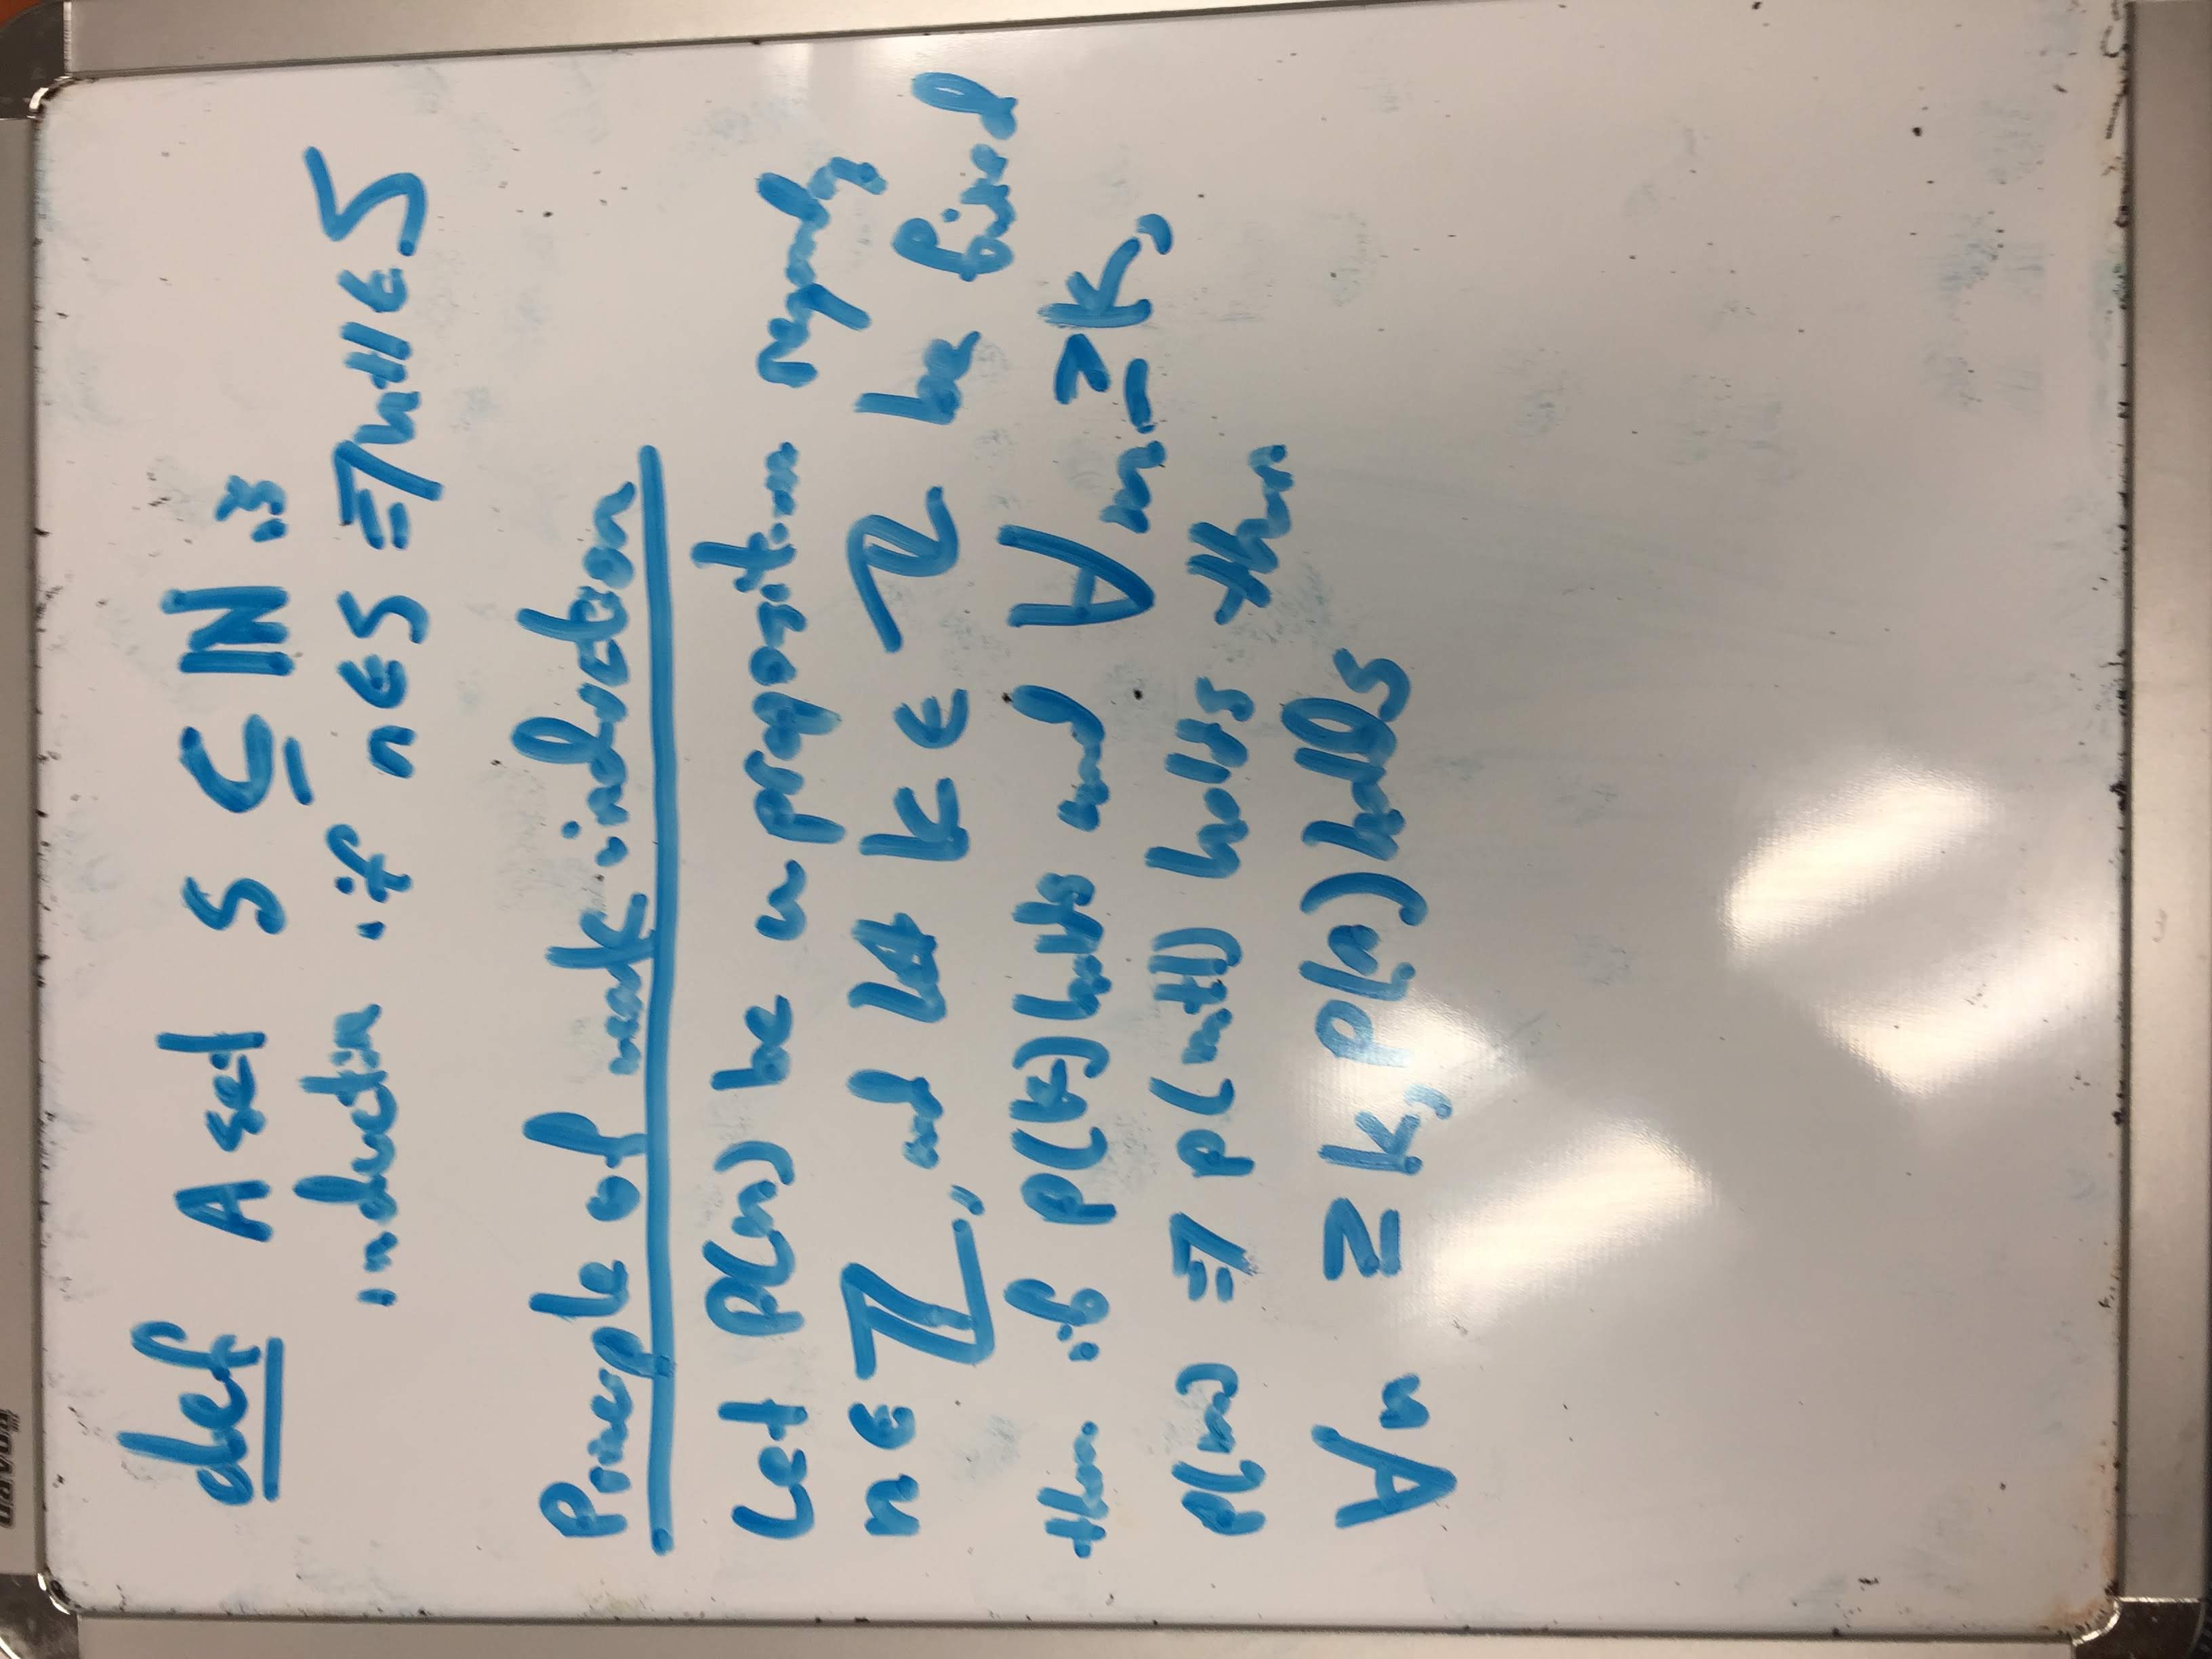 def A set S ⊆ ℕ is
inductive if n ∈ S ⇒ n+1 ∈ S
Principle of weak induction
Let P(n) be a proposition regarding
n ∈ ℤ, and let k ∈ ℤ be fixed
then if P(k) holds and ∀m ≥ k,
P(m) ⇒ P(m+1) holds then
∀n ≥ k, P(n) holds